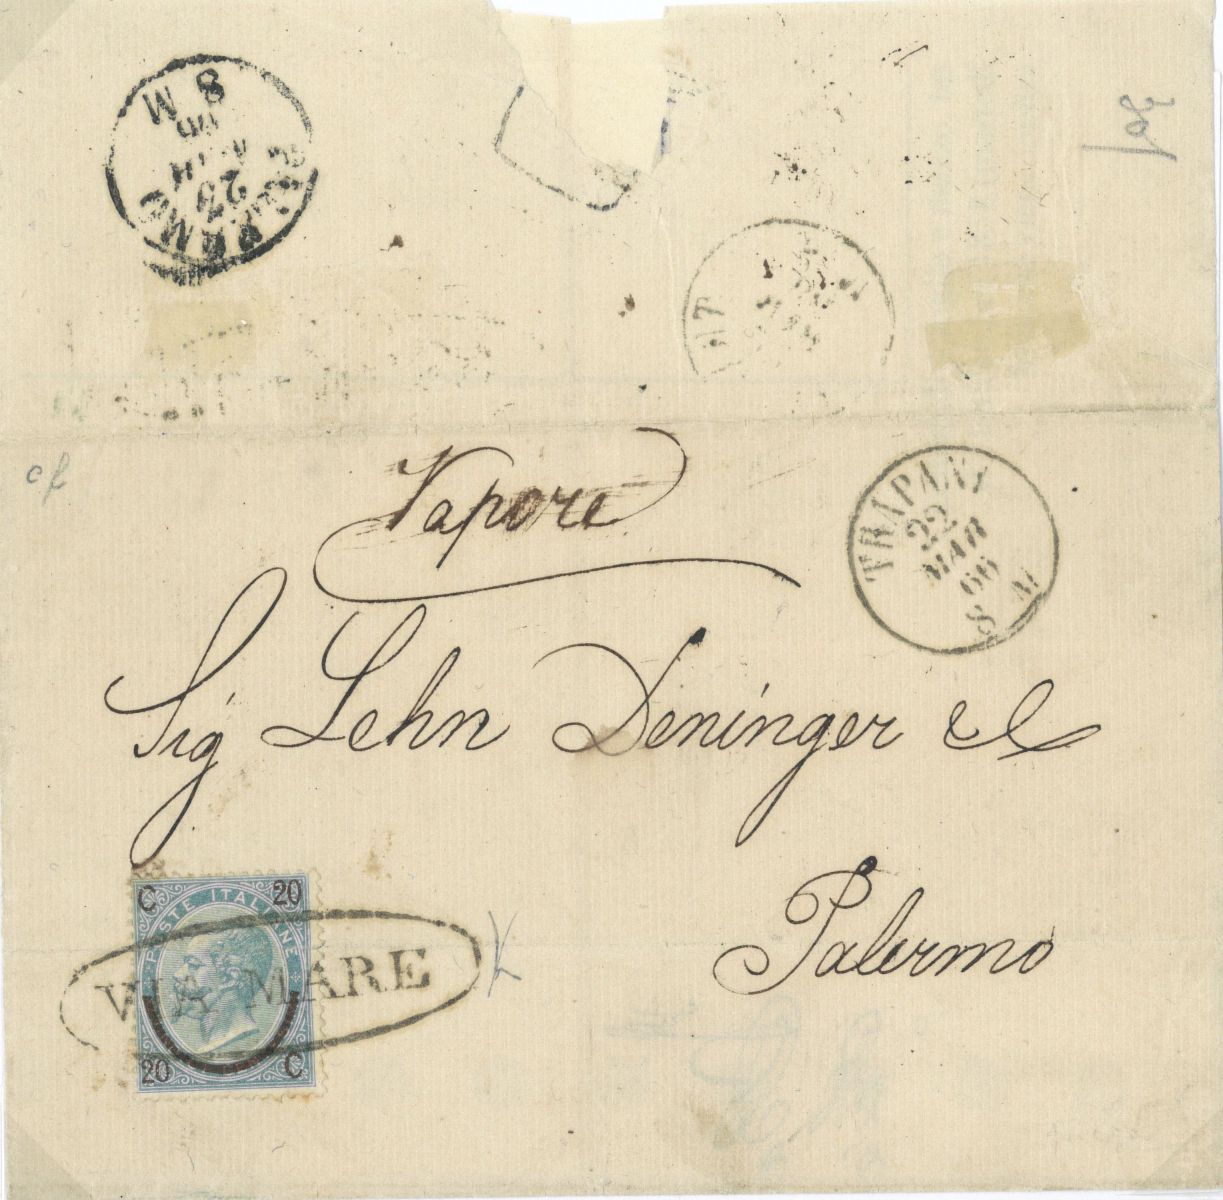 PALERMO
23
MAR
66
8 M
Vapore
TRAPANI
22
MAR
66
8 M
Sig Lehn Deninger & C
Palermo
C 20
POSTE ITALIANE
VIA MARE
20 C